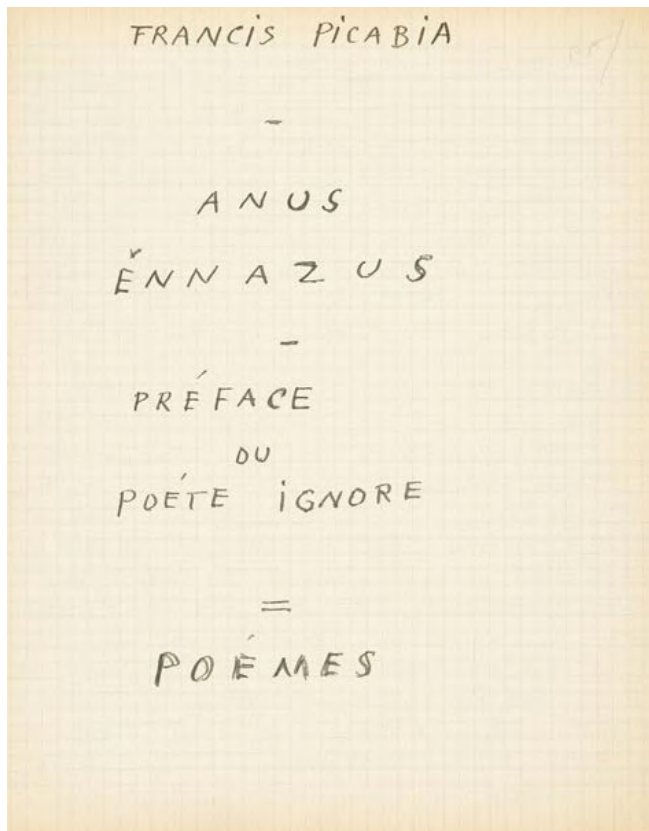 FRANCiS PiCABiA
-
ANUS
ĚNNAZUS
-
PRÉFACE
DU
POÉTE iGNORE
=
POÉMES